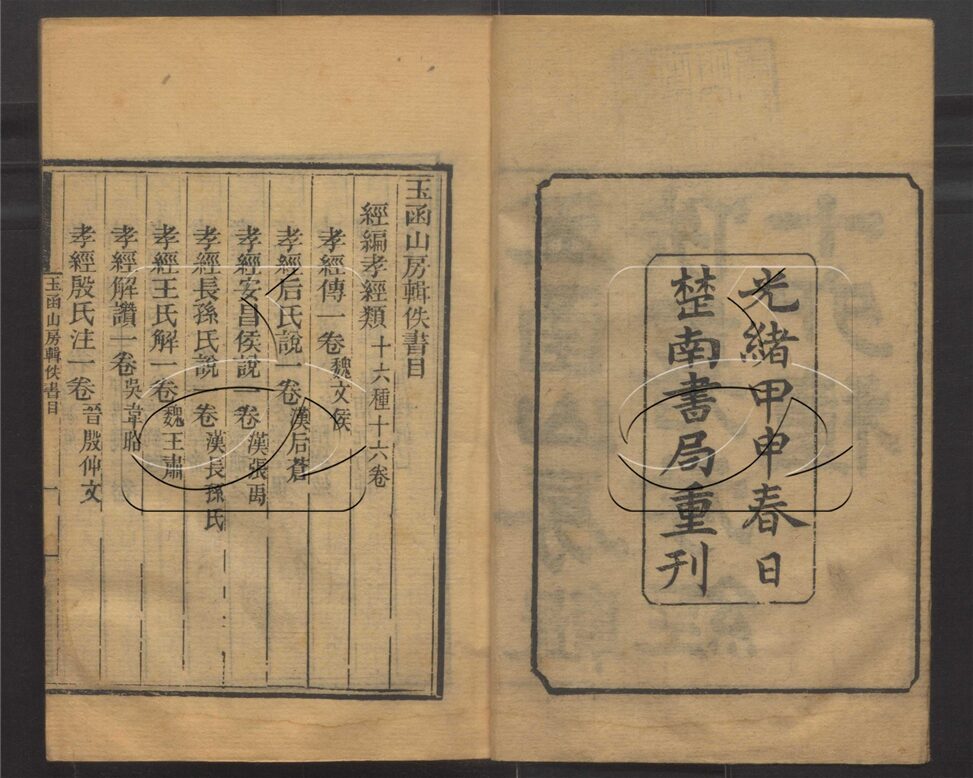 光緒甲申春日
楚南書局重刊
玉函山房輯佚書目
經編孝經類十六種十六卷
孝經傳一卷魏文侯
孝經后氏說一卷漢后蒼
孝經安昌侯說一卷漢張禹
孝經長孫氏說一卷漢長孫氏
孝經王氏解一卷魏王肅
孝經解讚一卷吳韋昭
孝經殷氏注一卷晉殷仲文
玉函山房輯佚書目
一